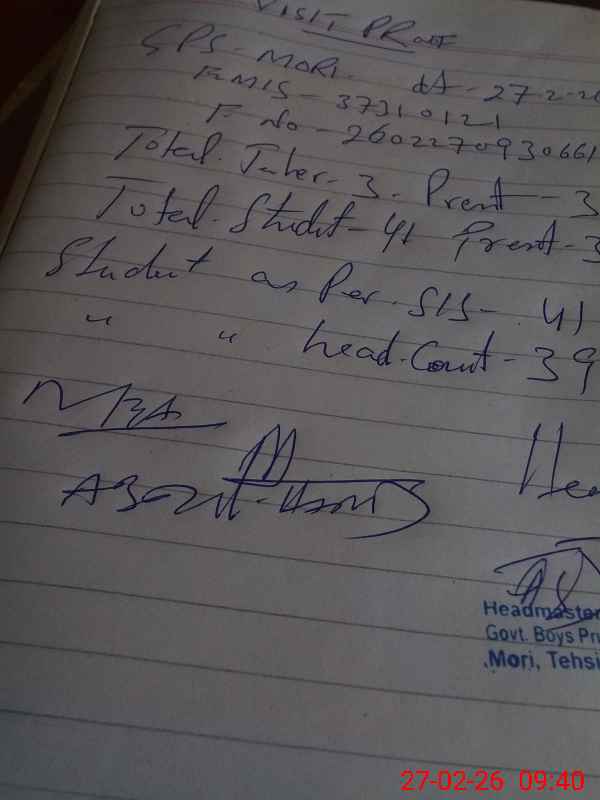 VISIT PROOF
GPS - MORI. dt - 27-2-20
EMIS - 37310121
F. No - 2602270930661
Total. - 3. Present - 3
Total. Student - 41 Present - 3
Student as Per. SIS - 41
" " head. Count - 39
Hea
Headmaster
Govt. Boys Pri
Mori, Tehsi
27-02-26 09:40